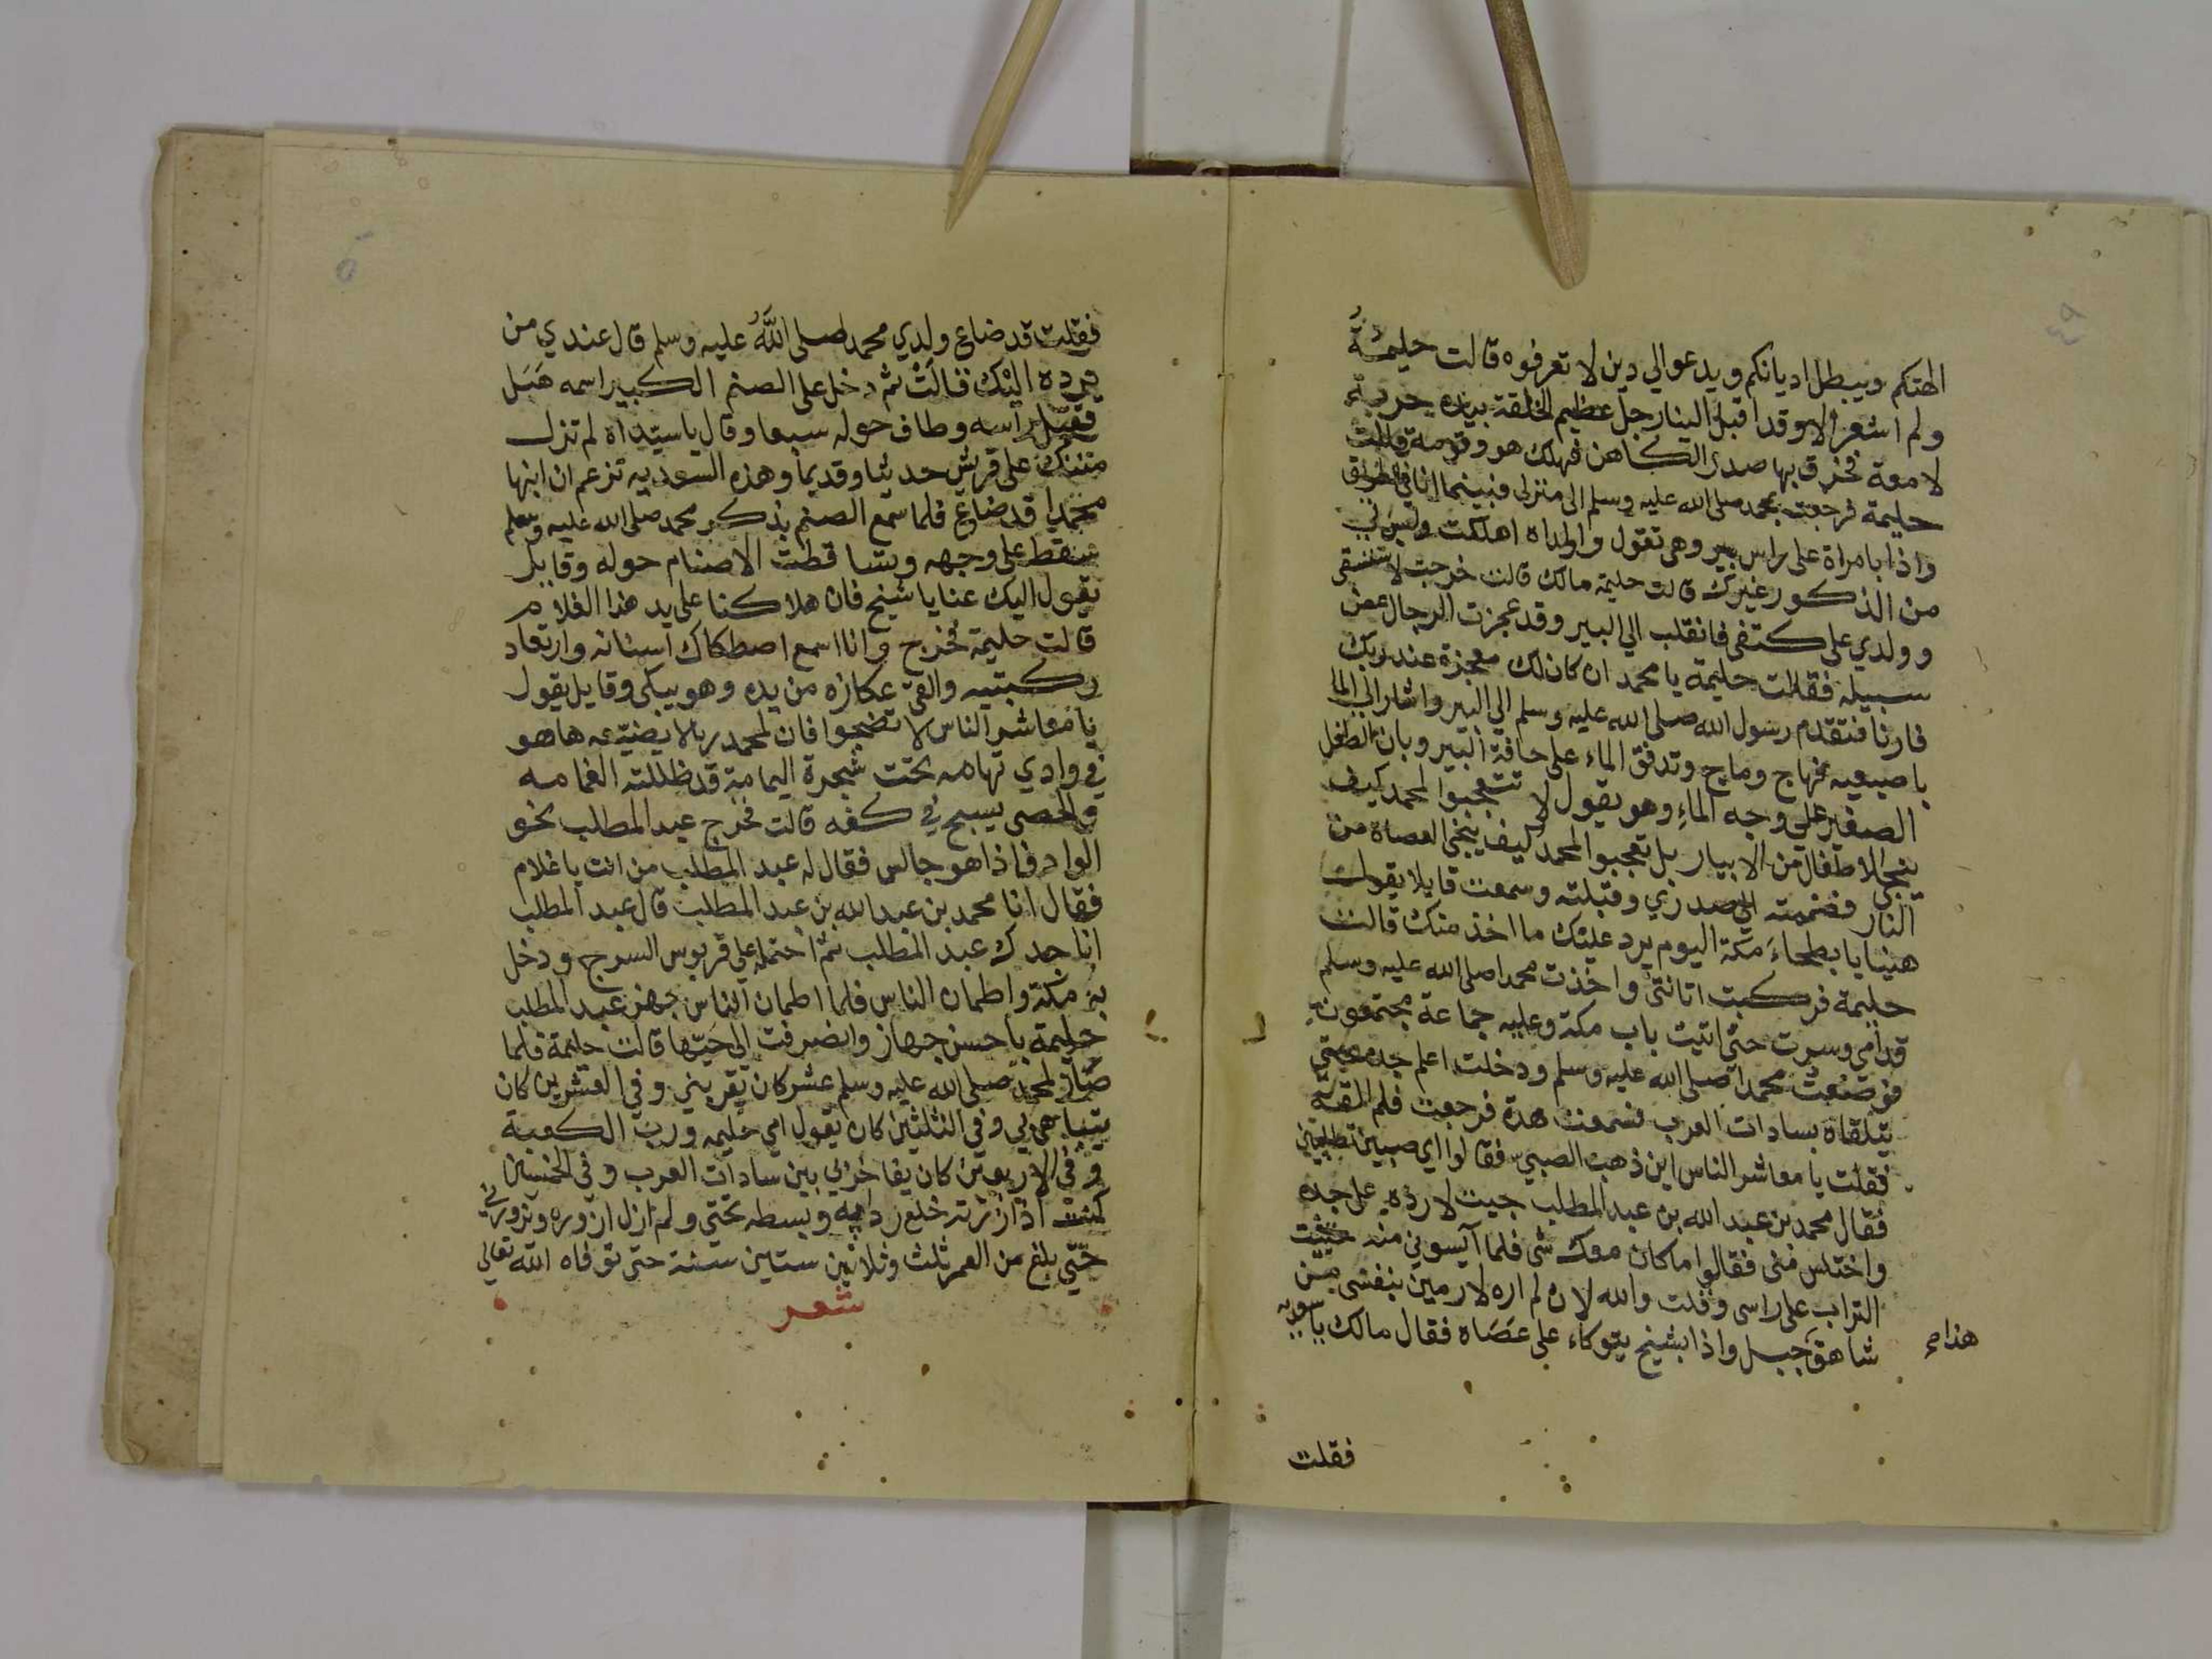 ٤٩
الهتكم ويبطل اديانكم ويدعو الي دين لا تعرفوه قالت حليمة
ولم اشعر الا وقد اقبل الينا رجل عظيم الخلقة بيده حربة
لامعة فخرق بها صدر الكاهن فهلك هو وقومه قالت
حليمة فرجعت بمحمد صلى الله عليه وسلم الى منزلى فبينما انا فى الطريق
واذا بامراة على راس بير وهى تقول واولداه اهلكت وليس لي
من الذكور غيرك قالت حليمة مالك قالت خرجت لاستسقى
وولدي على كتفى فانقلب الي البير وقد عجزت الرجال عن
سبيله فقالت حليمة يا محمد ان كان لك معجزة عند ربك
فارنا فتقدم رسول الله صلى الله عليه وسلم الي البير واشار الي الما
باصبعيه فهاج وماج وتدفق الماء على حافة البير وبان الطفل
الصغير علي وجه الماء وهو يقول لا تتعجبوا لمحمد كيف
ينجى الاطفال من الابيار بل تعجبوا لمحمد كيف ينجى العصاة من
النار فضممته الي صدري وقبلته وسمعت قايلا يقول
هنيا يا بطحاء مكة اليوم يرد عليك ما اخذ منك قالت
حليمة فركبت اتانتى واخذت محمدا صلى الله عليه وسلم
قدامى وسرت حتى اتيت باب مكة وعليه جماعة مجتمعون
فوضعت محمدا صلى الله عليه وسلم ودخلت اعلم جده حتى
يتلقاه بسادات العرب فسمعت هدة فرجعت فلم القه
فقلت يا معاشر الناس اين ذهب الصبي فقالوا اى صبيي تطلبين
فقال محمد بن عبد الله بن عبد المطلب جيت لارده على جده
واختلس منى فقالوا ما كان معك شى فلما آيسونى منه حثيت
التراب على راسى وقلت والله لان لم اره لارمين بنفسى من
شاهق جبل واذا بشيخ يتوكاء على عصاه فقال مالك يا سعديه
هذا م
فقلت
٥٠
فقلت قد ضاع ولدي محمد صلى الله عليه وسلم قال عندي من
يرده اليك قالت ثم دخل على الصنم الكبير اسمه هبل
فقبل راسه وطاف حوله سبعا وقال يا سيداه لم تزل
منتك على قريش حديثا وقديما وهذه السعديه تزعم ان ابنها
محمدا قد ضاع فلما سمع الصنم بذكر محمد صلى الله عليه وسلم
سقط على وجهه وتساقطت الاصنام حوله وقايل
يقول اليك عنا يا شيخ فان هلاكنا على يد هذا الغلام
قالت حليمة فخرج وانا اسمع اصطكاك اسنانه وارتعاد
ركبتيه والقى عكازه من يده وهو يبكى وقايل يقول
يا معاشر الناس لا تضجوا فان لمحمد ربا لا يضيعه هاهو
في وادي تهامه تحت شجرة اليمامة قد ظللته الغمامه
والحصى يسبح في كفه قالت فخرج عبد المطلب نحو
الواد فاذا هو جالس فقال له عبد المطلب من انت يا غلام
فقال انا محمد بن عبد الله بن عبد المطلب قال عبد المطلب
انا جدك عبد المطلب ثم احتمله على قربوس السرج ودخل
به مكة واطمان الناس فلما اطمان الناس جهز عبد المطلب
حليمة باحسن جهاز وانصرفت الى حيها قالت حليمة فلما
صار لمحمد صلى الله عليه وسلم عشر كان يقربني وفي العشرين كان
يتباهى بي وفي الثلثين كان يقول امي حليمه ورب الكعبة
وفي الاربعين كان يفاخر بي بين سادات العرب وفي الخمسين
كنت اذا زرته خلع رداءه وبسطه تحتى ولم ازل ازوره ويزورني
حتى بلغ من العمر ثلث وثلاثين ستين سنة حتى توفاه الله تعالى
شعر